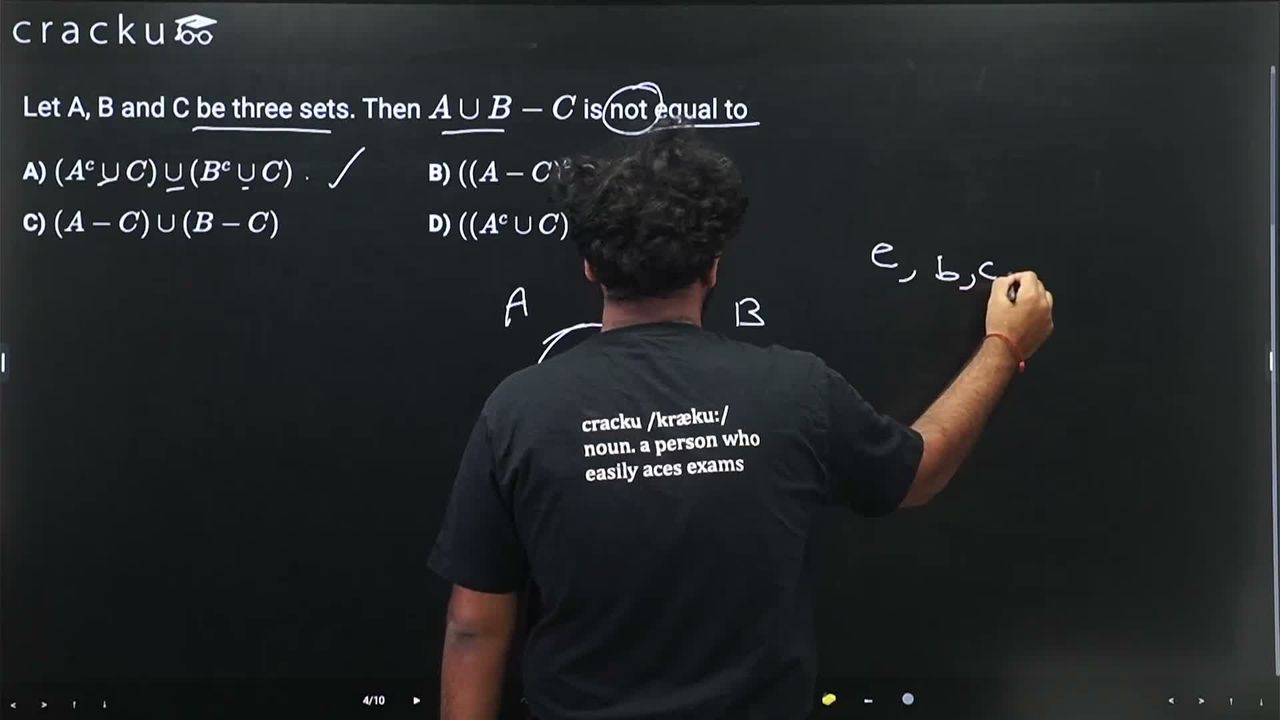 cracku
Let A, B and C be three sets. Then A ∪ B − C is not equal to
A) (Aᶜ ∪ C) ∪ (Bᶜ ∪ C) .
B) ((A − C)
C) (A − C) ∪ (B − C)
D) ((Aᶜ ∪ C)
e, b, c
A
B
cracku /krækuː/
noun. a person who
easily aces exams
4/10